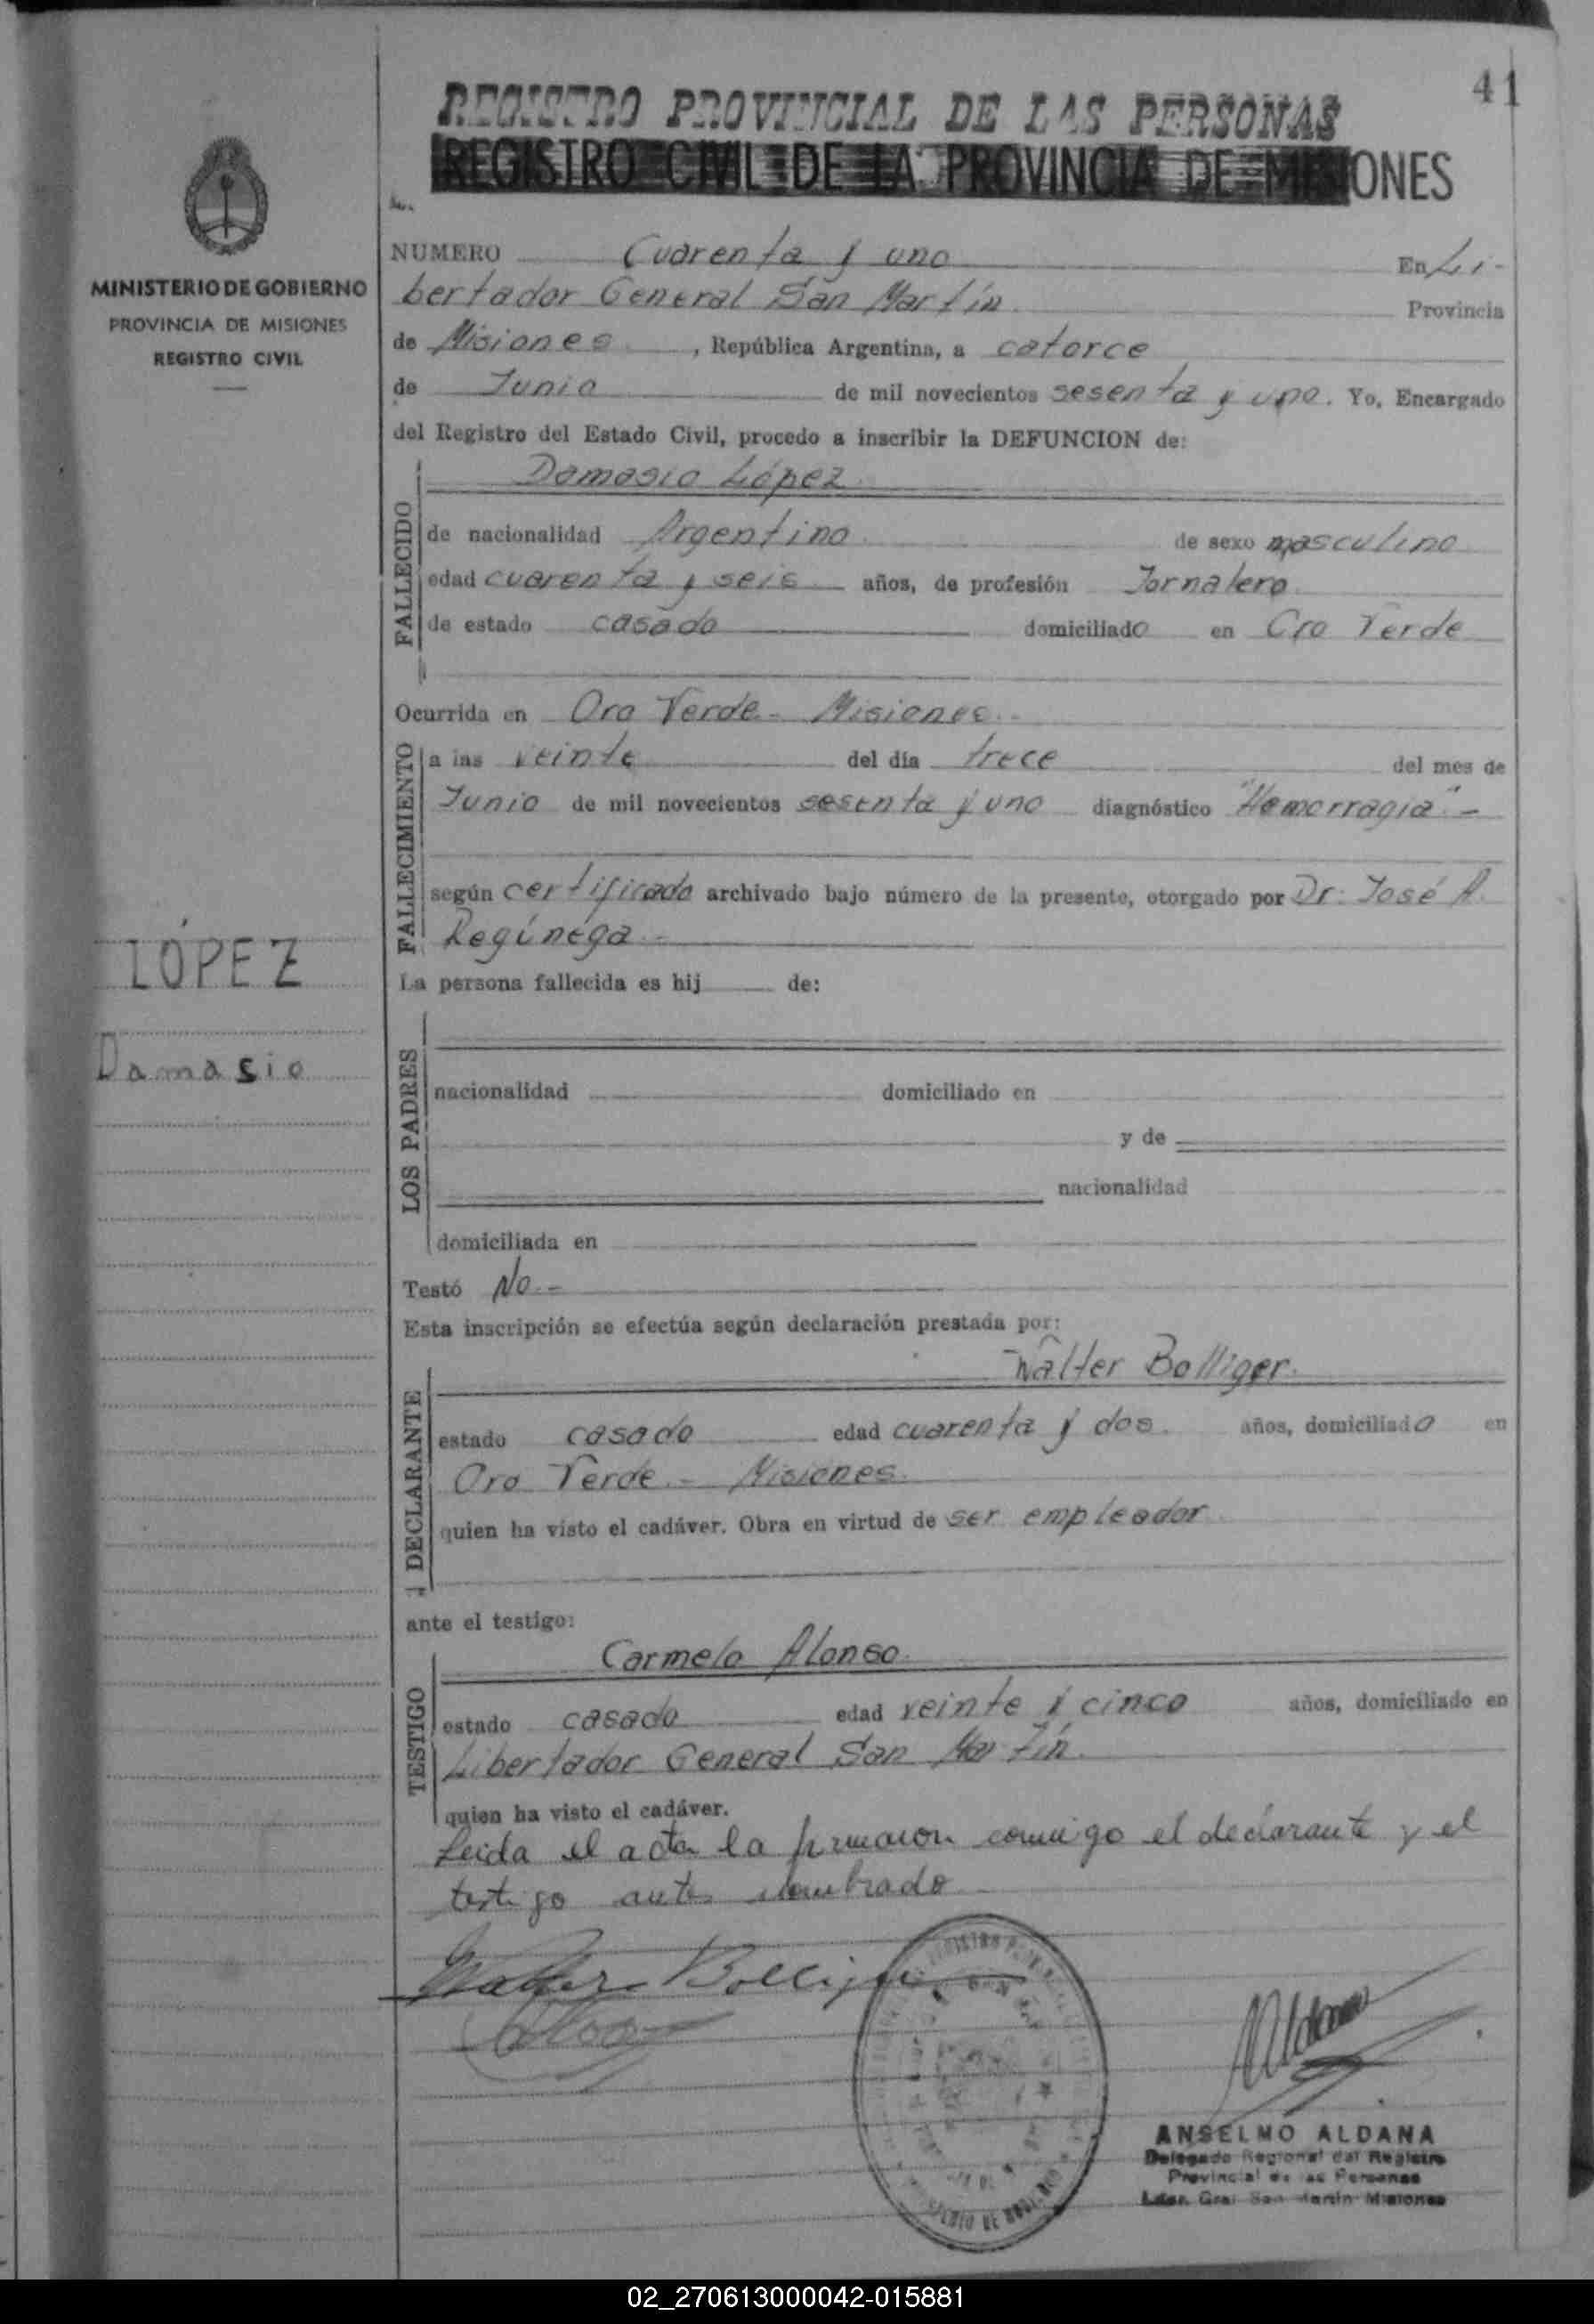 41
REGISTRO PROVINCIAL DE LAS PERSONAS
REGISTRO CIVIL DE LA PROVINCIA DE MISIONES
MINISTERIO DE GOBIERNO
PROVINCIA DE MISIONES
REGISTRO CIVIL
NUMERO Cuarenta y uno En Li-
bertador General San Martín Provincia
de Misiones, República Argentina, a catorce
de Junio de mil novecientos sesenta y uno. Yo, Encargado
del Registro del Estado Civil, procedo a inscribir la DEFUNCION de:
Damasio López
FALLECIDO
de nacionalidad Argentino de sexo masculino
edad cuarenta y seis años, de profesión Jornalero
de estado casado domiciliado en Oro Verde
Ocurrida en Oro Verde - Misiones.-
FALLECIMIENTO
a las veinte del día trece del mes de
Junio de mil novecientos sesenta y uno diagnóstico "Hemorragia".-
según certificado archivado bajo número de la presente, otorgado por Dr. José A.
Regúnega.-
LÓPEZ
Damasio
La persona fallecida es hij de:
LOS PADRES
nacionalidad domiciliado en
y de
nacionalidad
domiciliada en
Testó No.-
Esta inscripción se efectúa según declaración prestada por:
Walter Bolliger.
DECLARANTE
estado casado edad cuarenta y dos. años, domiciliado en
Oro Verde - Misiones.
quien ha visto el cadáver. Obra en virtud de ser empleador
ante el testigo:
Carmelo Alonso.
TESTIGO
estado casado edad veinte y cinco años, domiciliado en
Libertador General San Martín.
quien ha visto el cadáver.
Leida el acta la firmaron conmigo el declarante y el
testigo antes nombrado
Walter Bolliger
ANSELMO ALDANA
Delegado Regional del Registro
Provincial de las Personas
Ldor. Gral San Martín Misiones
02_270613000042-015881